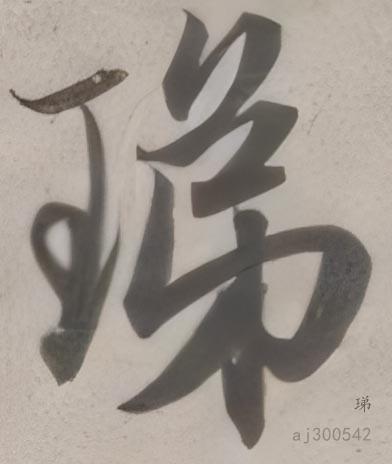 珶
珶
aj300542